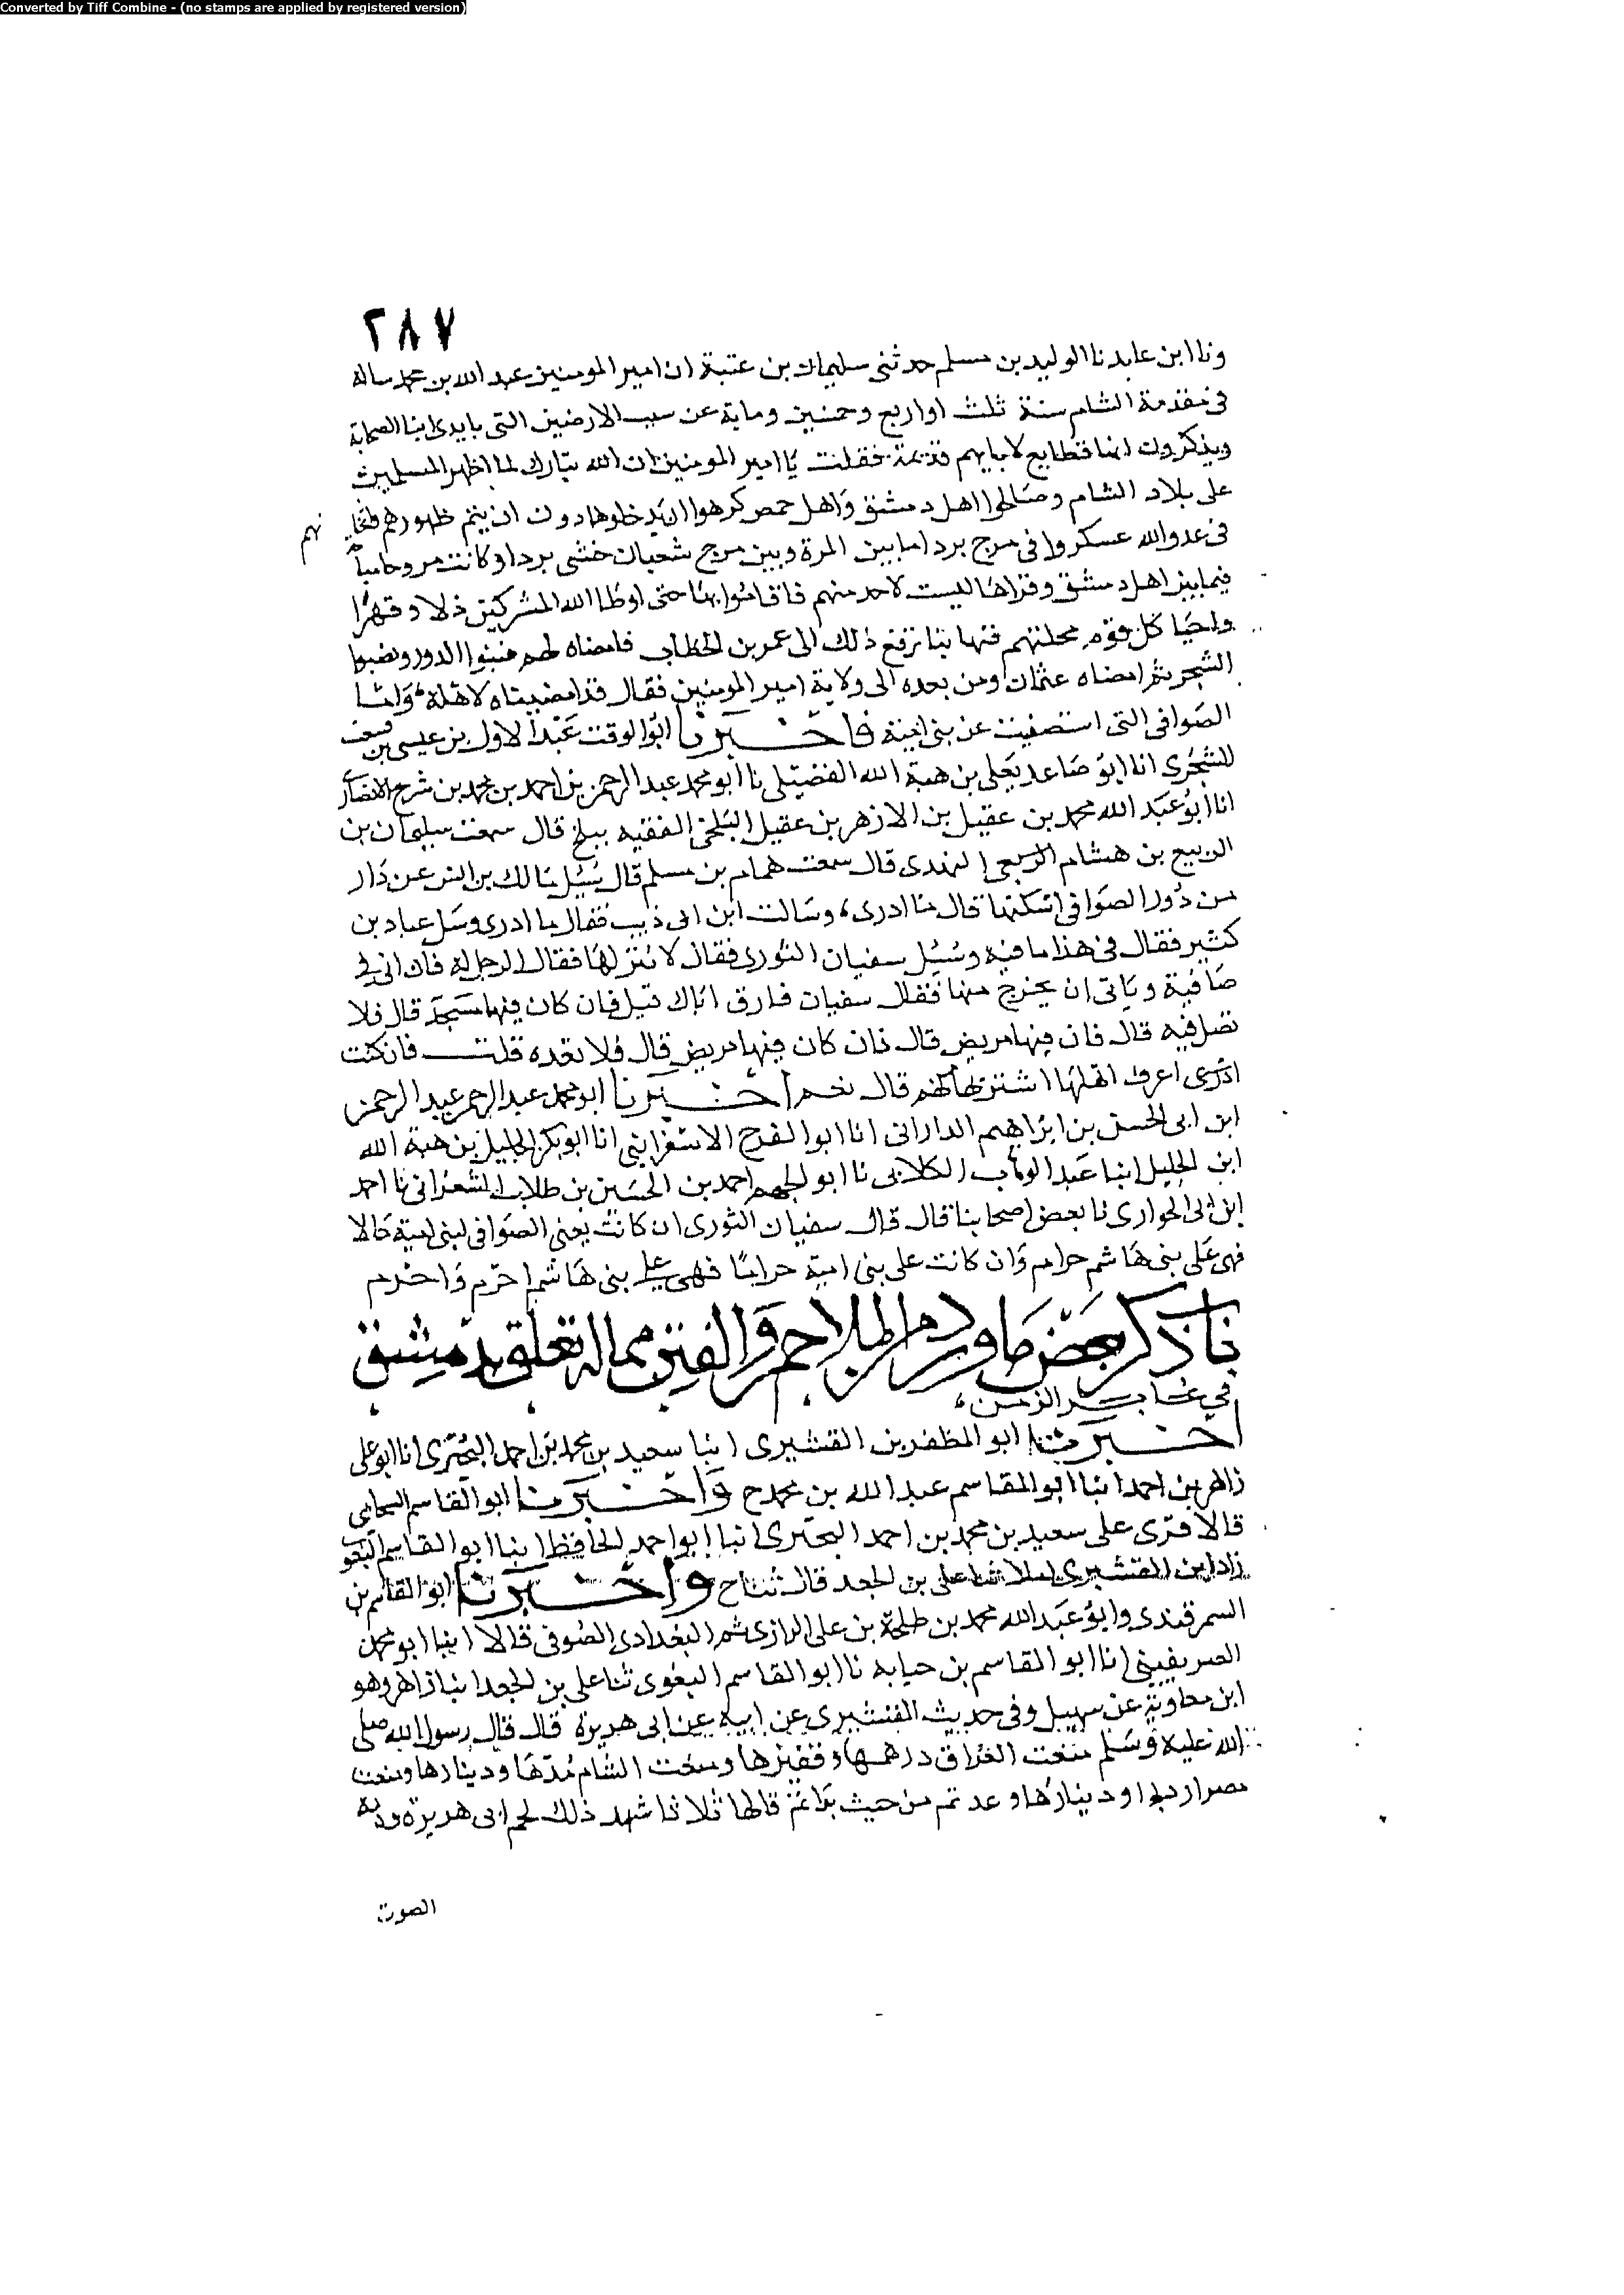 Converted by Tiff Combine - (no stamps are applied by registered version)
٢٨٧
ونا ابن عابد نا الوليد بن مسلم حدثني سليمان بن عتبة ان امير المومنين عبد الله بن محمد ساله
في مقدمة الشام سنة ثلث او اربع وخمسين وماية عن سبب الارضين التي بايدى ابنا الصحابة
ويذكرون انها قطايع لابايهم قديمة فقلت يا امير المومنين ان الله تبارك لما اظهر المسلمين
على بلاد الشام وصالحوا اهل دمشق واهل حمص كرهوا ان يدخلوها دون ان يتم ظهورهم واثخا
نهم
في عدو الله عسكروا في مرج بردا ما بين المزة وبين مرج شعبان خشى بردا وكانت مروجا مباحة
فيما بين اهل دمشق وقراها ليست لاحد منهم فاقاموا بها حتى اوطا الله المشركين ذلا وقهرا
واحيا كل قوم محلتهم فيها بنا ترفع ذلك الى عمر بن الخطاب فامضاه لهم فبنوا الدور ونصبوا
الشجر ثم امضاه عثمان ومن بعده الى ولاية امير المومنين فقال قد امضيناه لاهله واما
الصوافي التي استصفيت عن بني امية فاخبرنا ابو الوقت عبد الاول بن عيسى بن شعيب
السجزى انا ابو صاعد يعلى بن هبة الله الفضيلى نا ابو محمد عبد الرحمن بن احمد بن محمد بن شريح الانصارى
انا ابو عبد الله محمد بن عقيل بن الازهر بن عقيل البلخي الفقيه ببلخ قال سمعت سليمان بن
الربيع بن هشام الربعي النهدى قال سمعت همام بن مسلم قال سئل مالك بن انس عن دار
من دور الصوافي اسكنها قال ما ادرى وسالت ابن ابي ذيب فقال ما ادرى وسل عباد بن
كثير فقال في هذا ما فيه وسئل سفيان الثورى فقال لا تنزلها فقال الرجل له فان اني في
صافية وياتي ان يخرج منها فقال سفيان فارق اباك قيل فان كان فيها مسجد قال فلا
تصل فيه قال فان فيها مريض قال فان كان فيها مريض قال فلا تعده قلت فان كنت
ادرى اعرف اهلها اشتريها لهم قال نعم اخبرنا ابو محمد عبد الرحمن
ابن ابي الحسن بن ابراهيم الداراني انا ابو الفرج الاسفرايني انا ابو بكر الخليل بن هبة الله
ابن الخليل انبا عبد الوهاب الكلابي نا ابو الجهم احمد بن الحسين بن طلاب الشعراني نا احمد
ابن ابي الحوارى نا بعض اصحابنا قال قال سفيان الثورى ان كانت يعني الصوافي لبني امية حلالا
فهي على بني هاشم حرام وان كانت على بني امية حراما فهي على بني هاشم احرم واحرم
باب ذكر بعض ما ورد من الملاحم والفتن مما له تعلق بدمشق
في غابر الزمن
اخبرنا ابو المظفر بن القشيرى انبا سعيد بن محمد بن احمد البحترى انا ابو على
زاهر بن احمد انبا ابو القاسم عبد الله بن محمد ح واخبرنا ابو القاسم الشحامي
قالا قرى على سعيد بن محمد بن احمد البحترى انبا ابو احمد الحافظ انبا ابو القاسم البغوى
زاد ابن القشيرى املا ثنا على بن الجعد قال ثنا ح واخبرنا ابو القاسم بن
السمرقندى وابو عبد الله محمد بن طلحة بن على الرازى ثم البغدادى الصوفي قالا انبا ابو محمد
الصريفيني انا ابو القاسم بن حبابه نا ابو القاسم البغوى ثنا على بن الجعد انبا زاهر وهو
ابن معاوية عن سهيل وفي حديث القشيرى عن ابيه عن ابي هريرة قال قال رسول الله صلى
الله عليه وسلم منعت العراق درهمها وقفيزها ومنعت الشام مدها ودينارها ومنعت
مصر اردبها ودينارها وعدتم من حيث بداتم قالها ثلاثا شهد ذلك لحم ابي هريرة ودمه
الصوت